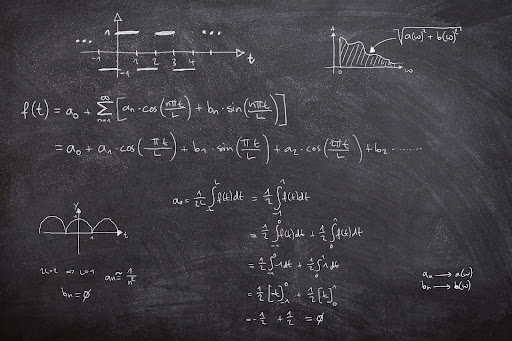 1
... ...
1 2 3 4 t
-1
√(a(ω)² + b(ω)²)
0 ω
f(t) = a₀ + ∑ₙ₌₁^∞ [aₙ·cos(nπt/L) + bₙ·sin(nπt/L)]
= a₀ + a₁·cos(πt/L) + b₁·sin(πt/L) + a₂·cos(2πt/L) + b₂.........
a₀ = 1/2L ∫₋L^L f(t)dt = 1/2 ∫₋₁^1 f(t)dt
= 1/2 ∫₋₁^0 f(t)dt + 1/2 ∫₀^1 f(t)dt
= 1/2 ∫₋₁^0 -1dt + 1/2 ∫₀^1 1dt
= 1/2 [-t]₋₁^0 + 1/2 [t]₀^1
= -1/2 + 1/2 = ∅
Y
1 t
aₙ ≅ 1/n²
bₙ = ∅
aₙ → a(ω)
bₙ → b(ω)